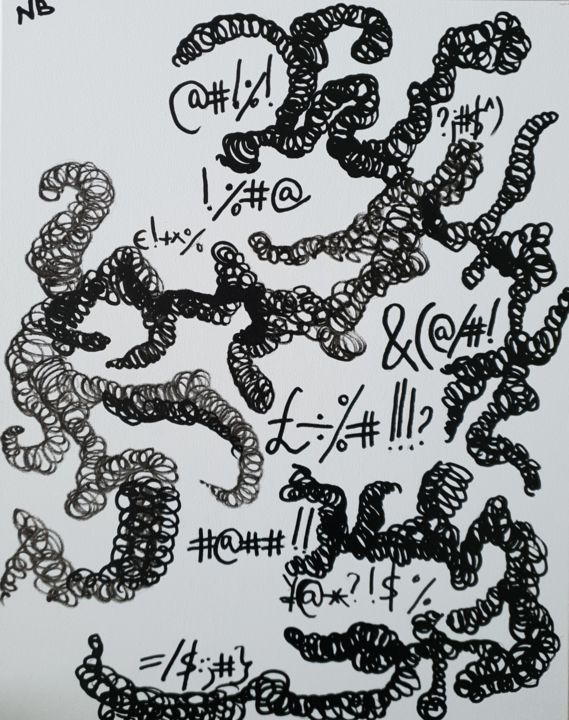 NB
@#!%!
?;#$^)
!%#@
€!+×%
&(@/#!
£÷%#!!!?
#@##!!
¥@*?!$%
=/$:;#}